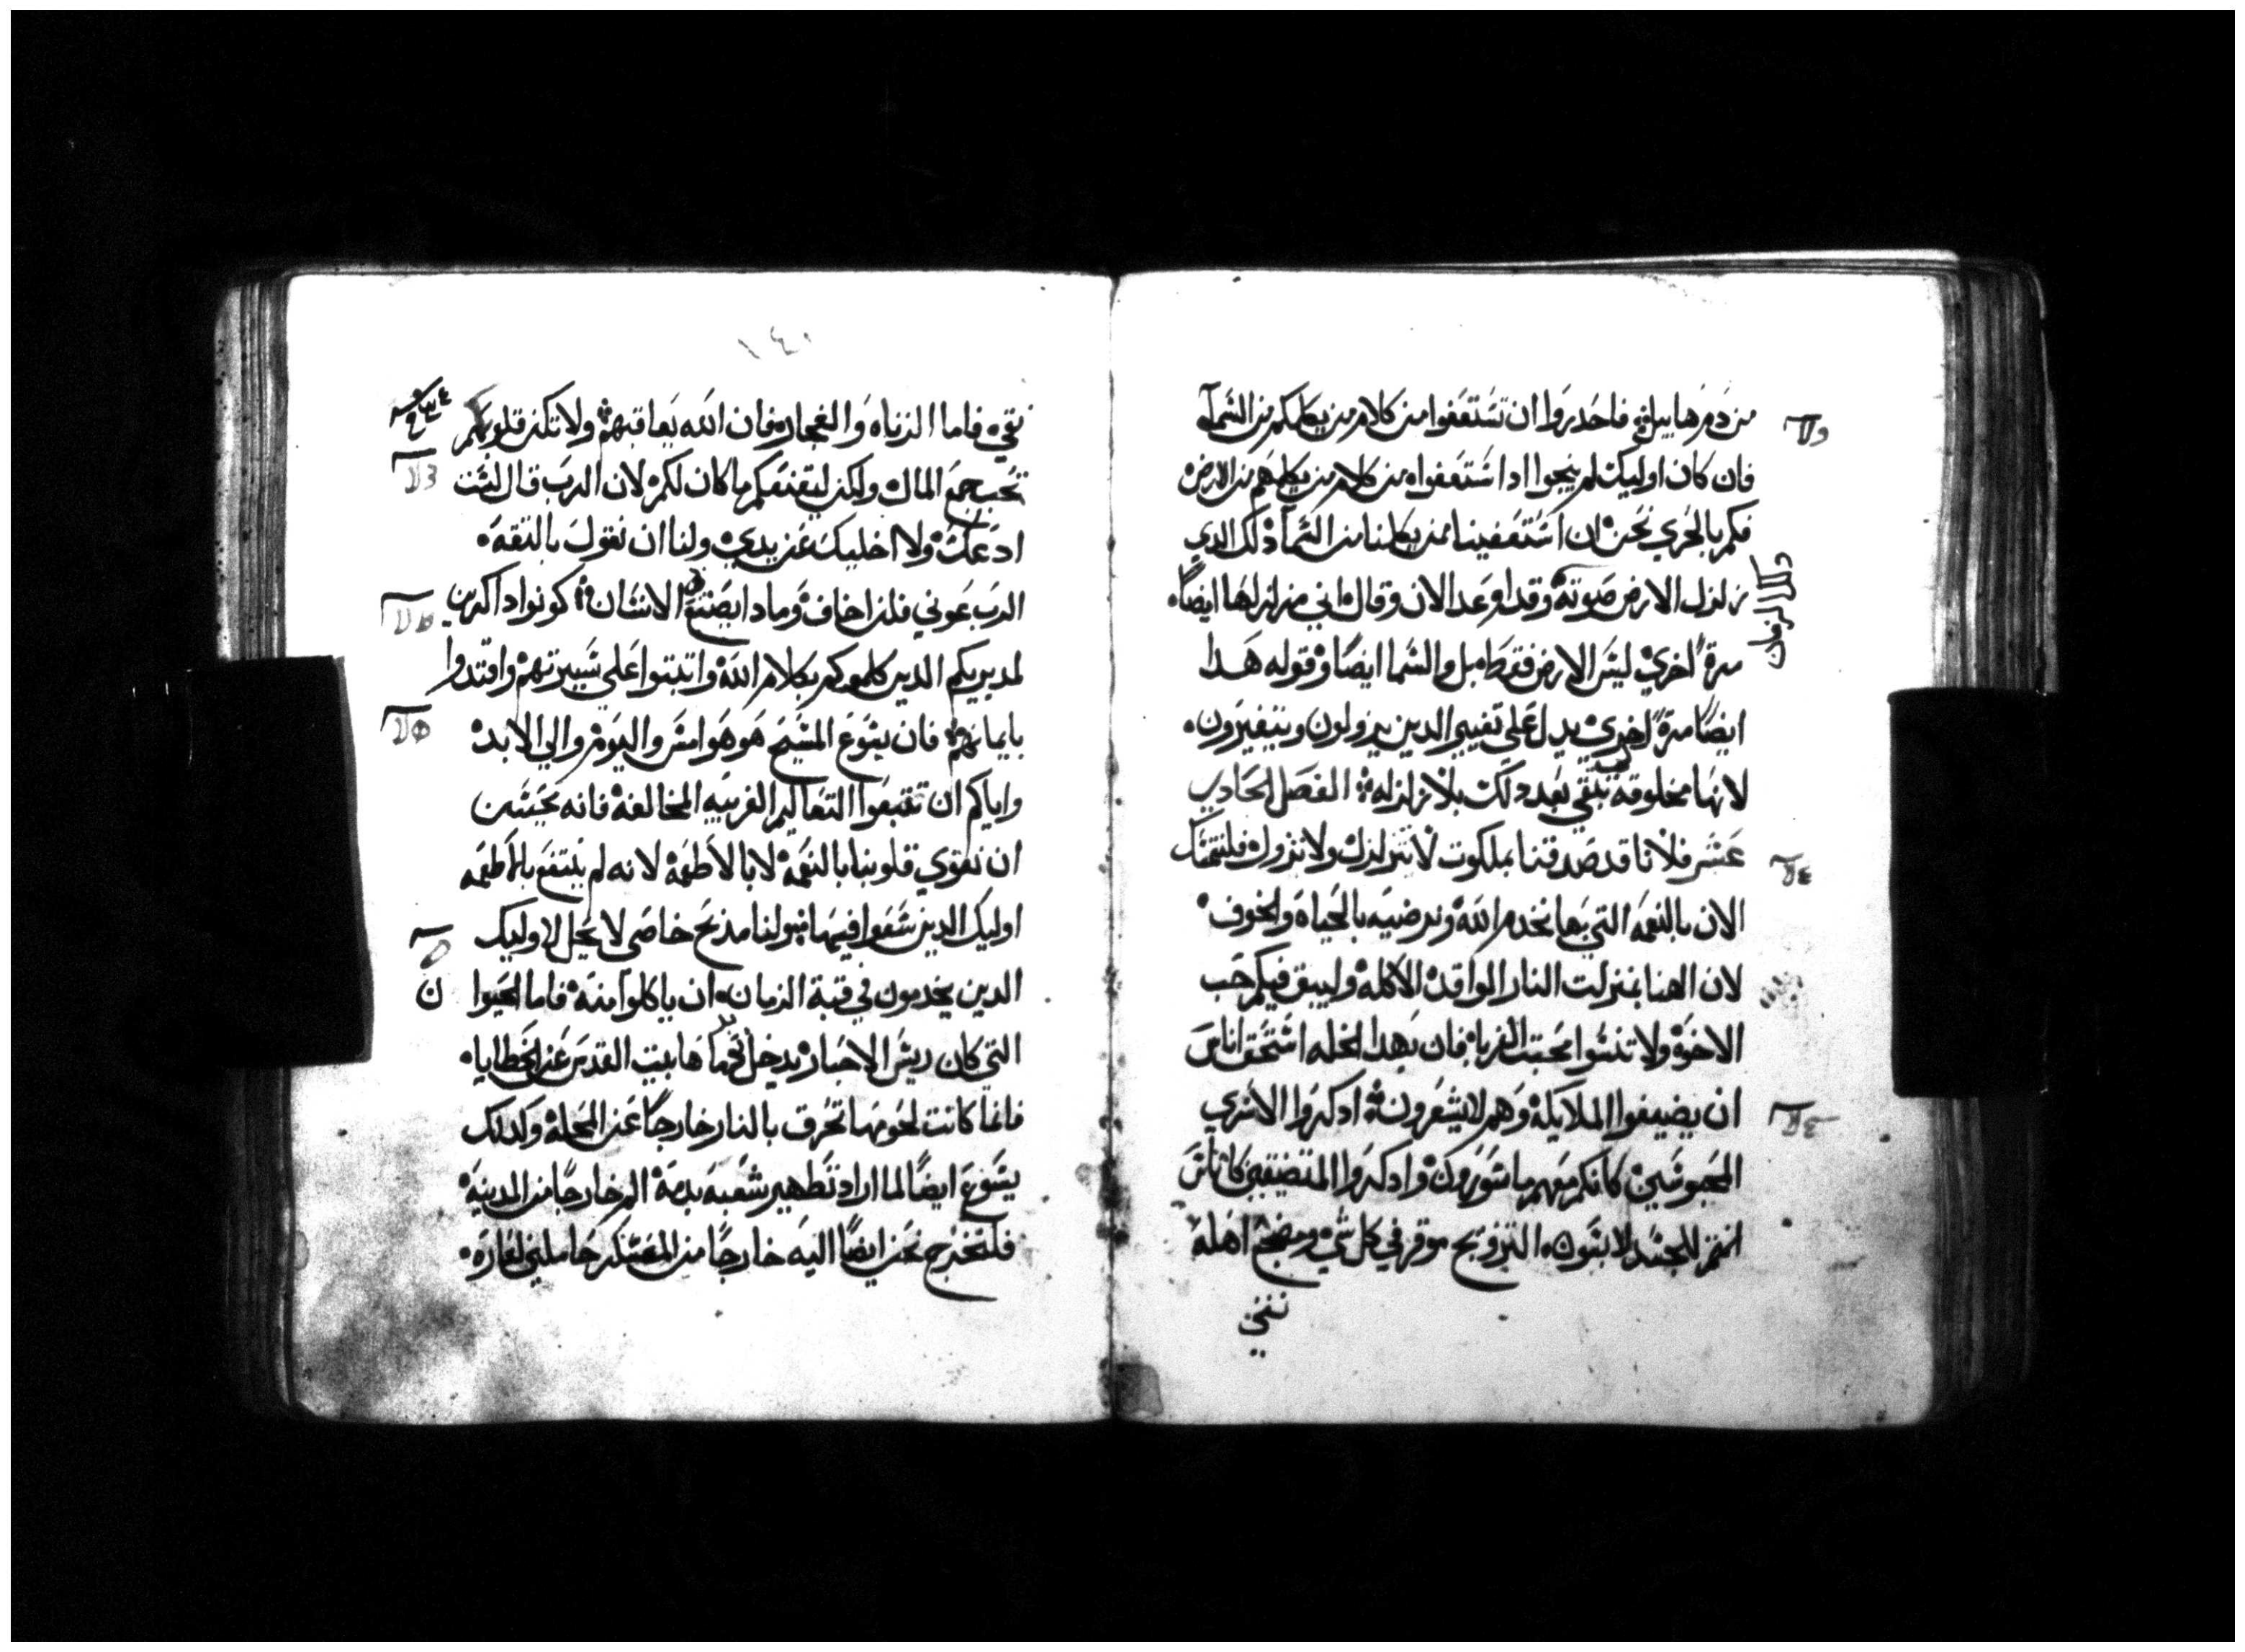 من دم هابيل فاحدروا ان تستعفوا من كلام من يكلمكم من السَمآ
فان كان اوليك لم ينجوا ادا استعفوا من كلام من يكلمهم من الارض
فكم بالحُري نحن ان استعفينا ممن يكلمنا من السَمآ دلك الدي
زلزل الارض صوته وقد اوعد الان وقال اني مزلزلها ايضًا
مرةً اخري ليس الارض فقط بل والسما ايضًا وقوله هدا
ايضًا مرةً اخري يدل علي تغيير الدين يزولون ويتغيرون
لانها مخلوقه لتبقي بعد دلك بلا زلزله الفصل الحادي
عشر فلانا قد صدقنا بملكوت لا تتزلزل ولا تزول فلنتمسك
الان بالنعمه التي بها نخدم الله ونرضيه بالحياه والخوف
لان الهنا بمنزلت النار الواقده الاكله وليبق فيكم حب
الاخوه ولا تنسوا محبت الغربا فان بهدا الخله استحق اناس
ان يضيفوا الملايكه وهم لا يشعرون ادكروا الاسري
المحبوسين كانكم معهم ماسورون وادكروا المتضيقين كاناس
انتم للجسد لابسون التزويج موقر في كل شي ومضجع اهله
نقي
١٤٠
نقي فاما الزناه والفجاره فان الله يعاقبهم ولا تكن قلوبكم
تحب جمع المال ولكن ليقنعكم ما كان لكم لان الرب قال لست
ادعك ولا اخليك عن يدي ولنا ان نقول بالثقه
الرب عوني فلن اخاف وما دا يصنع بي الانسان كونوا داكرين
لمدبريكم الدين كلموكم بكلام الله واتبتوا علي سيرتهم واقتدوا
بايمانهم فان يسوع المسيح هو هو امس واليوم والي الابد
واياكم ان تتبعوا التعاليم الغريبه المخالفه فانه يحسن
ان نقوي قلوبنا بالنعمه لا بالاطعمه لانه لم ينتفع بالاطعمه
اوليك الدين سعوا فيها ولنا مدبح خاصي لا يحل لاوليك
الدين يخدمون في قبة الزمان ان ياكلوا منه فاما الحيوا
التي كان ريس الاحبار يدخل بدماها بيت القدس عن الخطايا
فانما كانت لحومها تحرق بالنار خارجًا عن المحله وكدلك
يسوع ايضًا لما اراد تطهير شعبه بدمه الم خارجًا من المدينه
فلنخرج نحن ايضًا اليه خارجًا من المعسكر حاملين لعاره